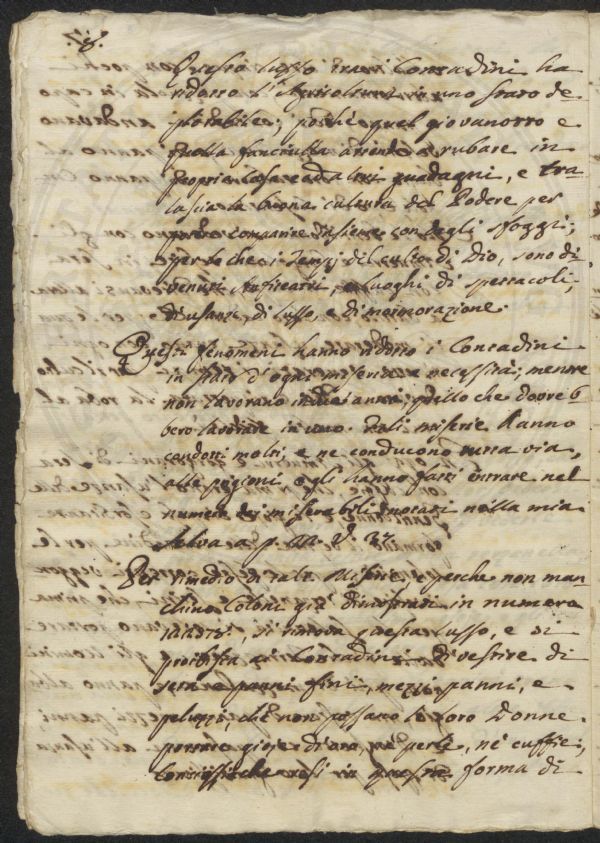 Questo lusso tra i Contadini ha
ridotto l'Agricoltura in uno stato de-
plorabile; poiché quel giovanotto e
quella fanciulla attende a rubare in
propria Casa ed altri guadagni, e tra-
lascia la buona cultura del Podere per
comparire insieme con degli sfoggi;
per che i Tempj del culto di Dio, sono di-
venuti Anfiteatri, e luoghi di spettacoli,
di usanze, di lusso, e di mormorazione.
Questi fenomeni hanno ridotto i Contadini
in stato d'ogni miseria e necessità; mentre
non lavorano in due anni, quello che dovreb-
bero lavorare in uno. Tali miserie hanno
condotti molti, e ne conducono tutta via,
alle prigioni, e gli hanno fatti entrare nel
numero dei miserabili notati nella mia
Selva a p.
Per rimedio di tale Miserie, e perche non man-
chino Coloni già in numero
si rimova questo lusso, e si
proibisca ai Contadini di vestire di
seta e panni fini, mezzi panni, e
peluzzi, che non possano le loro Donne
portare gioje d'oro, né perle, né cuffie;
resi in questa forma di